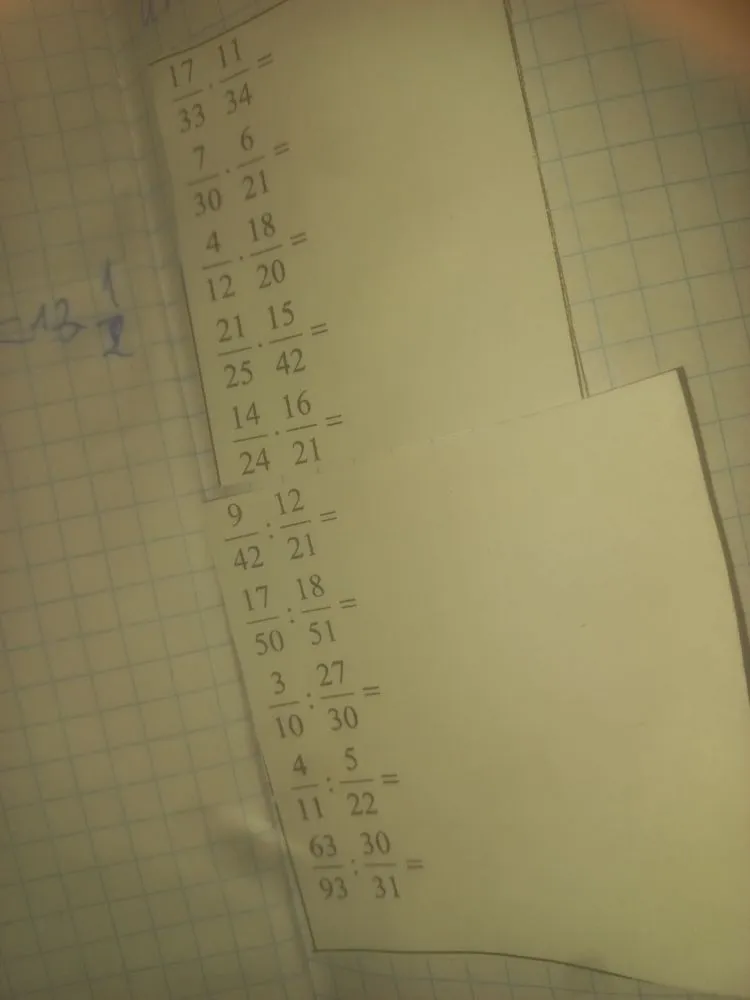 17/33 · 11/34 =
7/30 · 6/21 =
4/12 · 18/20 =
=13 1/2
21/25 · 15/42 =
14/24 · 16/21 =
9/42 : 12/21 =
17/50 : 18/51 =
3/10 : 27/30 =
4/11 : 5/22 =
63/93 : 30/31 =